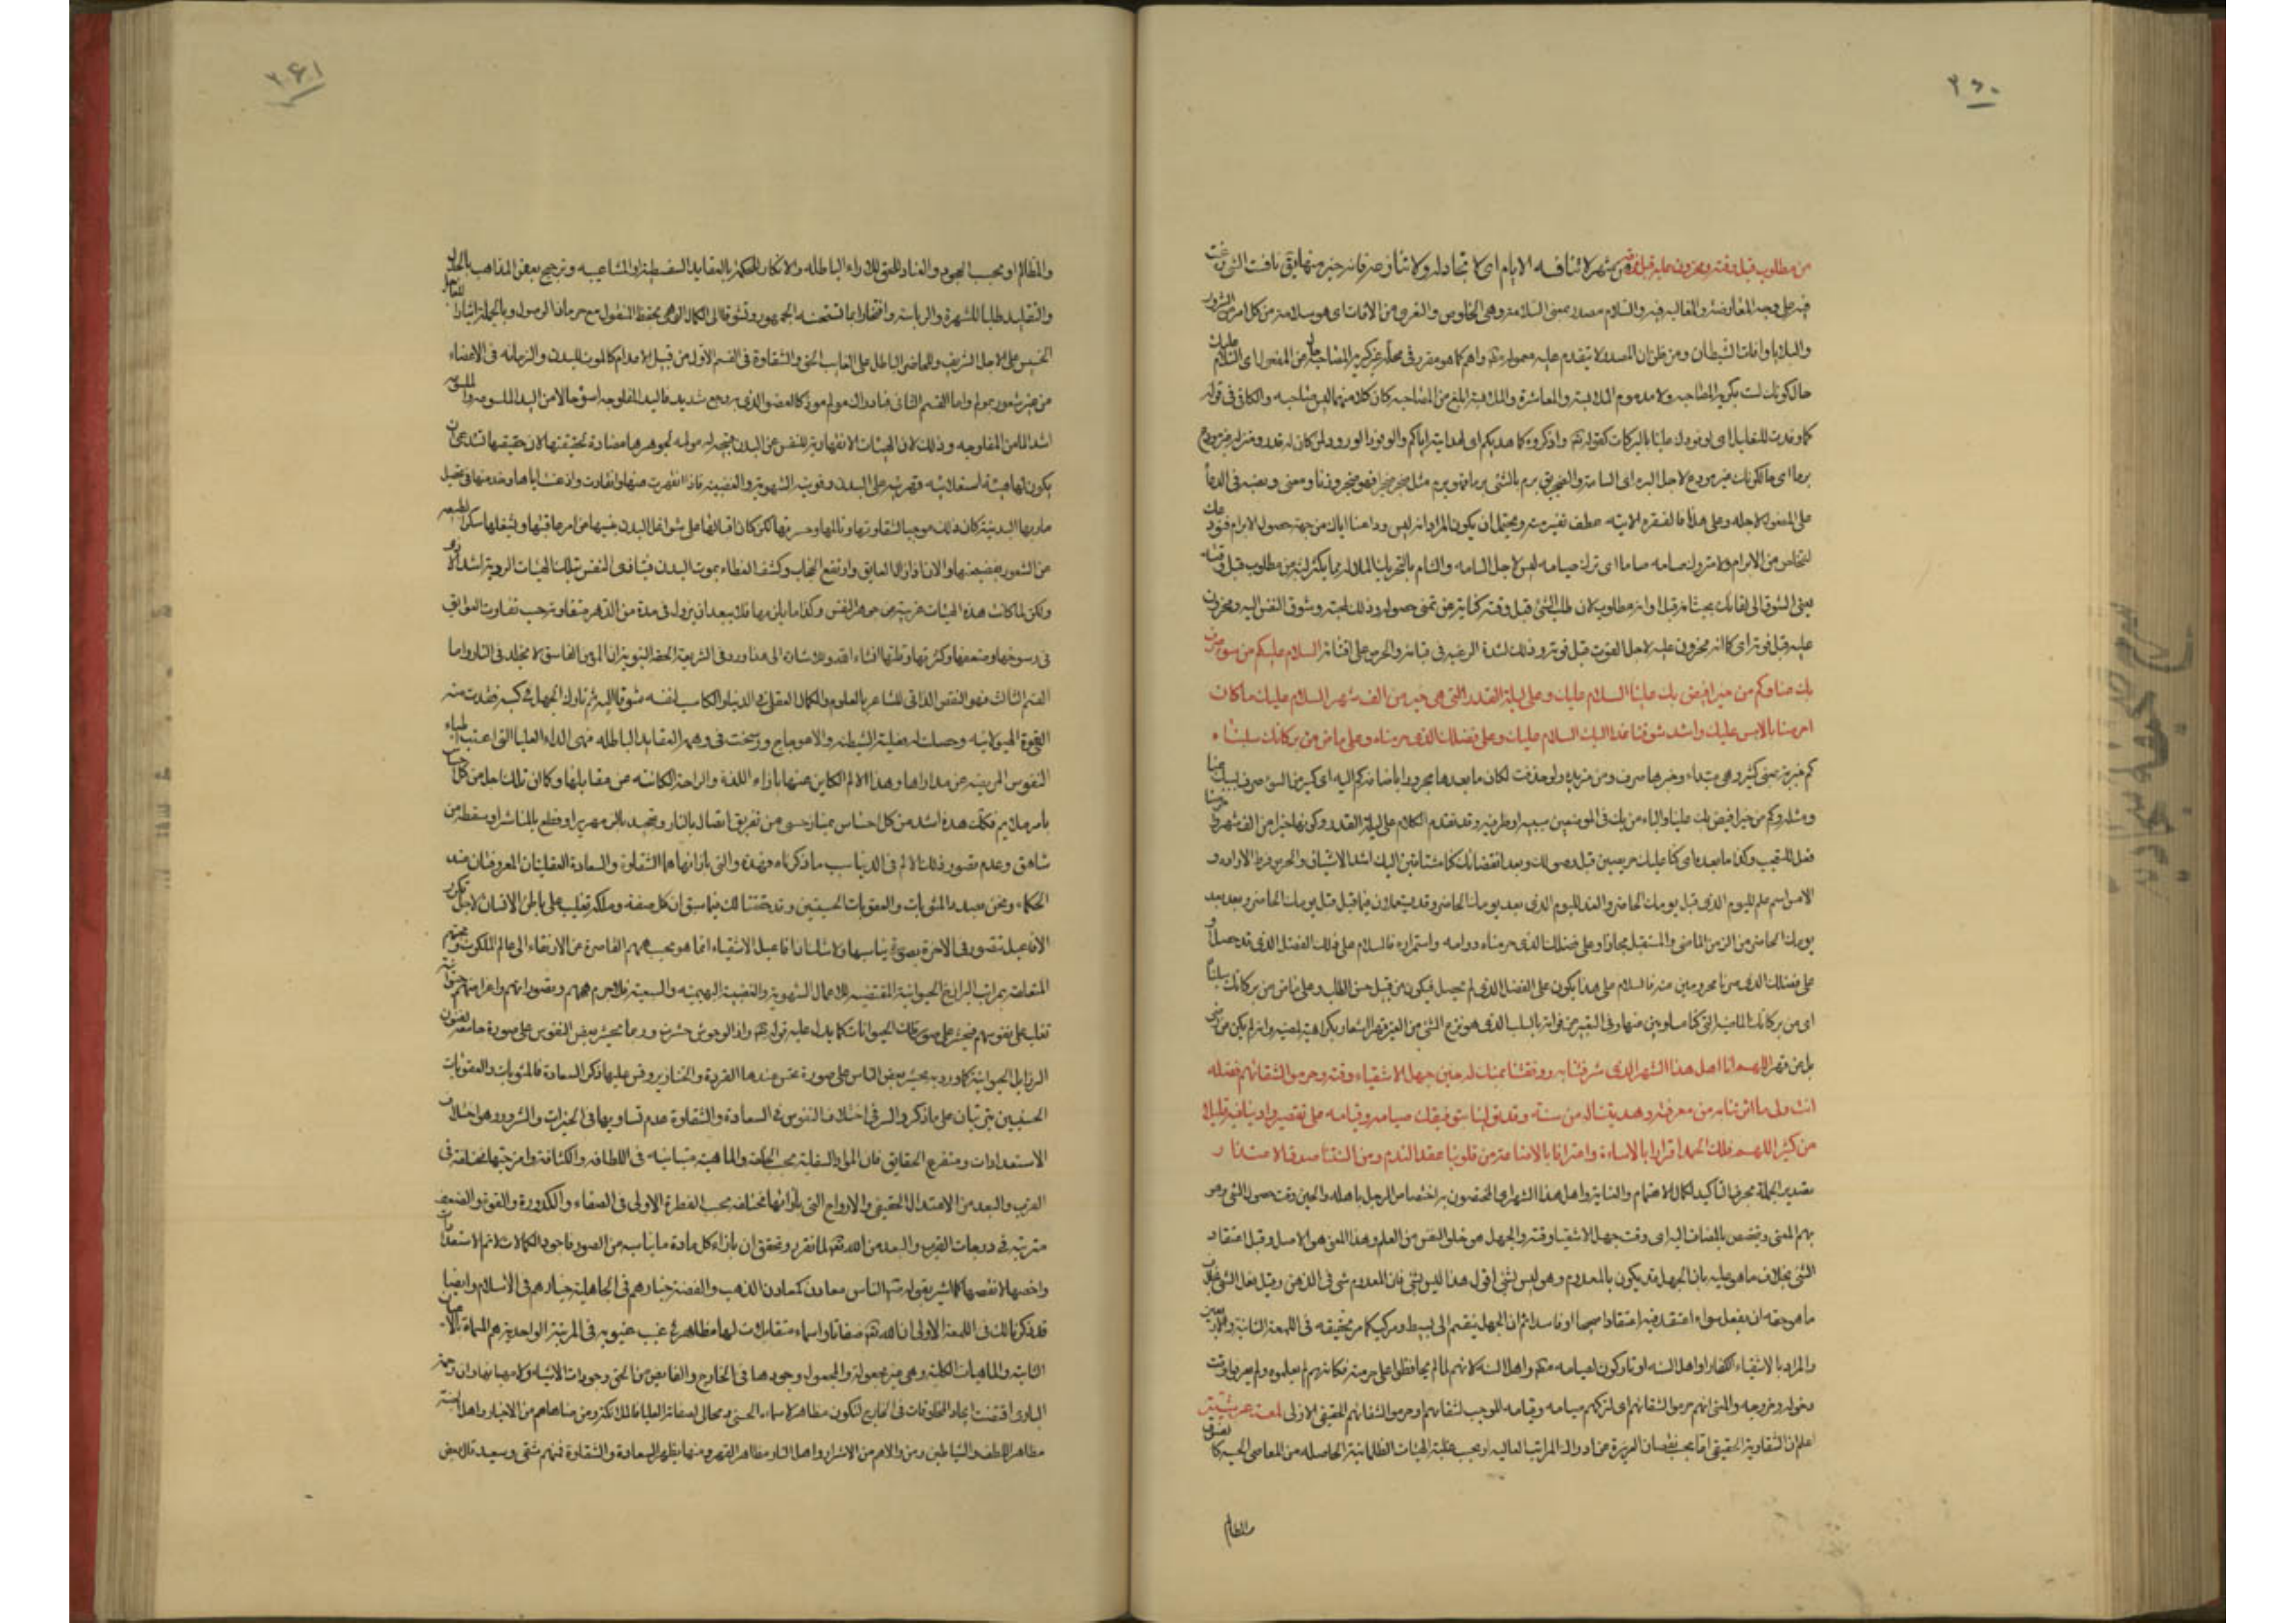 ٢٦٠
من مطلوب قبل وقته ومحزون عليه قبل فوته من شهر لا تنافسه الايام اى لا تجادله ولا تنازعه فانه خير منها يق نافست الشئ رغبت
فيه على وجه المعارضة والمغالبه فيه والسلام مصدر بمعنى السلامة وهى الخلوص والتعرى من الافات اى هو سلامة من كل امر من الشرور
والبلايا وافات الشيطان ومن ظن ان المصدر لا يتقدم عليه معموله فقد واهم كما هو مقرر فى محله غير كريه المصاحبة حال من المفعول اى السلام عليك
حال كونك لست بكريه المصاحبه ولا مذموم الملابسة والمعاشرة والملابسة ابلغ من المصاحبه كان كلا منهما لابس صاحبه والكاف فى قوله
كما وفدت للتعليل اى لوفودك علينا بالبركات كقوله تع واذكروه كما هديكم اى لهدايته اياكم والوفود الورود ولمن كان له قدر ومنزله غير مودع
برما اى حالكونك غير مودع لاجل البرم اى السامة والضجر يق برم بالشئ برما فهو برم مثل ضجر ضجرا فهو ضجر وزنا ومعنى ونصبه فى الدعاء
على المفعول لاجله وعلى هذا فالفقره الاتيه عطف تفسير منه ويحتمل ان يكون المراد انه ليس وداعنا اياك من جهة حصول الابرام فنود عك
لنتخلص من الابرام ولا متروك صيامه ساما اى ترك صيامه ليس لاجل السامه والسام بالتحريك الملال مما يكثر لبثه من مطلوب قبل وقته
يعنى الشوق الى لقائك بحيث انه قبل اوانه مطلوب لان طلب الشئ قبل وقته كناية عن تمنى حصوله وذلك لمحبته وشوق النفس اليه ومحزون
عليه قبل فوته اى كانه محزون عليه لاجل الفوت قبل فوته وذلك لشدة الرغبه فى قيامه والحرص على اقتنائه السلام عليكم من سوء صرف
بك عنا وكم من خير افيض بك علينا السلام عليك وعلى ليلة القدر التى هى خير من الف شهر السلام عليك ما كان
احرصنا بالامس عليك واشد شوقنا غدا اليك السلام عليك وعلى فضلك الذى حرمناه وعلى ماض من بركاتك سلبناه
كم خبرية بمعنى كثير وهى مبتداء وخبرها صرف ومن مزيده ولو حذفت لكان ما بعدها مجرورا باضافة كم اليه اى كثير من السوء صرف بسببك عنا
ومثله وكم من خير افيض بك علينا والباء من بك فى الموضعين سببيه او ظرفيه وقد تقدم الكلام على ليلة القدر وكونها خيرا من الف شهر وما احرصنا
فعل للتعجب وكذا ما بعده اى كنا عليك حريصين قبل وصولك وبعد انقضائك كنا مشتاقين اليك اشد الاشتياق والحرص فرط الاراده و
الامس اسم علم لليوم الذى قبل يومك الحاضر والغد لليوم الذى بعد يومك الحاضر وقد يستعملان فيما قبل قبل يومك الحاضر وبعد بعد
يومك الحاضر من الزمن الماضى والمستقبل مجازا وعلى فضلك الذى حرمناه دوامه واستمراره فالسلام على ذلك الفضل الذى قد حصل او
على فضلك الذى صرنا محرومين منه فالسلام على هذا يكون على الفضل الذى لم يحصل فيكون من قبيل حسن الطلب وعلى ماض من بركاتك سلبناه
اى من بركاتك الماضية التى كنا مساوبين منها وفى التعبير عن فواته بالسلب الذى هو نزع الشئ من الغير قهرا اشعار بكراهيته لمضيه وانه لم يكن من رضى
بل من قهر اللهم انا اهل هذا الشهر الذى شرفتنا به ووفقتنا بمنك له حين جهل الاشقياء وقته وحرموا لشقائهم فضله
انت ولى ما اثرتنا به من معرفته وهديتنا له من سنته وقد تولينا بتوفيقك صيامه وقيامه على تقصير وادينا فيه قليلا
من كثير اللهم فلك الحمد اقرارا بالاساءة واعترافا بالاضاعة ولك من قلوبنا عقد الندم ومن السنتنا صدق الاعتذار
تصدير الجملة بحرف التاكيد لكمال الاهتمام والعناية واهل هذا الشهر اى المختصون به اختصاص الرجل باهله والحين وقت حصول الشئ وهو
مبهم المعنى ويتخصص بالمضاف اليه اى وقت جهل الاشقياء وقته والجهل هو خلو النفس من العلم وهذا المعنى هو الاصل وقيل اعتقاد
الشئ بخلاف ما هو عليه بان الجهل قد يكون بالمعدوم وهو ليس بشئ اقول هذا ليس بشئ فان المعدوم شئ فى الذهن وقيل فعل الشئ بخلاف
ما هو حقه ان يفعل سواء اعتقد فيه اعتقادا صحيحا او فاسدا ثم ان الجهل ينقسم الى بسيط ومركب كما مر تحقيقه فى اللمعة الثانية والاربعين
والمراد بالاشقياء الكفار او اهل السنه او تاركون لصيامه منكم واهل السنه لانهم لما لم يحافظوا على حرمته فكانهم لم يعلموه ولم يعرفوا وقت
دخوله وخروجه والمعنى انهم حرموا لشقائهم اى لتركهم صيامه وقيامه الموجب لشقائهم او حرموا لشقائهم الحقيقى الازلى لمعة عرشيتة
اعلم ان الشقاوة الحقيقى اما بحسب نقصان الغريزة عن ادراك المراتب العاليه او بحسب غلبة الهيئات الظلمانية الحاصله من المعاصى الحسيه كا لفسوق
والمظالم
٢٦١
والمظالم او بحسب الجحود والعناد للحق بالاراء الباطله والانكار للحكمة بالعقايد السفسطية او المشاغبيه وترجيح بعض المذاهب بالجدل
والتقليد طلبا للشهرة والرياسة وافتخارا بما تستحسنه الجمهور وتشوقا الى الكمال الوهمى بحفظ المنقول مع حرمان الوصول وبالجملة ايثارا للعاجل
الخسيس على الاجل الشريف وللحاضر الباطل على الغايب الحق والشقاوة فى القسم الاول من قبيل الاعدام كالموت للبدن والزمانه فى الاعضاء
من غير شعور بمولم واما القسم الثانى فبادراك مولم موذ كالعضو الذى به وجع شديد فاليد المفلوجه اسوء حالا من اليد الملسوعه والملسوعه
اشد الما من المفلوجه وذلك لان الهيئات الانقهارية للنفس عن البدن قبيحه له مولمه لجوهرها مضادة لحقيقتها لان حقيقتها تستدعى ان
يكون لها هيئة استعلائيه وقهرية على البدن وقوتيه الشهوية والغضبية فاذا انقهرت عنها وانقادت واذعنت اياها وخدمتها فى تحصيل
مآربها البدنية كان ذلك موجبا لشقاوتها وتالمها وحسرتها لكن كان اقبالها على شواغل البدن ينسيها من امر عاقبتها ويشغلها سكر الطبيعه
عن الشعور بفضيحتها والان اذ زال العايق وارتفع الحجاب وكشف الغطاء بموت البدن فيتاذى النفس بتلك الهيئات الرديه اشد الاذى
ولكن لما كانت هذه الهيئات غريبة عن جوهر النفس وكذا ما يلزمها فلا يبعد ان يزول فى مدة من الدهر متفاوتة حسب تفاوت العوايق
فى رسوخها وضعفها وكثرتها وقلتها انشاء الله ولهذا الاشارة الى هذا ورد فى الشريعة الحقه النبوية ان المؤمن الفاسق لا يخلد فى النار واما
القسم الثالث فهو النقص الذاتى للشاعر بالعلوم والكمال العقلى فى الدنيا والكاسب لنفسه شوقا اليه ثم تارك الجهد فى كسبه ففقدت منه
القوة الهيولانيه وحصلت له فعلية الشيطنه والاعوجاج ورسخت فى وهمه العقايد الباطله فهى الداء العياء التى اعيت اطباء
النفوس المريضه عن مداواها وهذا الالم الكاين عنها بازاء اللذة والراحة الكائنه عن مقابلها وكما ان تلك اجل من كل احساس
بامر ملايم فكذلك هذه اشد من كل احساس بمناف حسى من تفريق اتصال بالنار وتجميد بالزمهرير او قطع بالمناشير او سقطة من
شاهق وعدم تصور ذلك الالم فى الدنيا سبب ما ذكرناه فهذه والتى بازائها هما الشقاوة والسعادة العقليتان المعروفتان عند
الحكماء ونحن بصدد المثوبات والعقوبات الحسيتين وقد حققنا لك فيما سبق ان كل صفة وملكة تغلب على باطن الانسان لاجل تكرر
الافاعيل تتصور فى الاخرة بصورة يناسبها ولا شك ان افاعيل الاشقياء انما هو بحسب هممهم القاصرة عن الارتقاء الى عالم الملكوت وهممهم
المتعلقة بمراتب البرازخ الحيوانية المقتضيه للاعمال الشهوية والغضبية البهيميه والسبعية فلا جرم هممهم وتصوراتهم واغراضهم حيوانية
تغلب على نفوسهم فيحشر على صور تلك الحيوانات كما يدل عليه قوله تع واذا الوحوش حشرت وربما يحشر بعض النفوس على صورة جامعة لفنون
الرذايل الحيوانية كما ورد به يحشر بعض الناس على صورة تحسن عندها القردة والخنازير وقس عليها ذكر السعادة فالمثوبات والعقوبات
الحسيتين يترتبان على ما ذكر والسر فى اختلاف النفوس فى السعادة والشقاوة عدم تساويها فى الخيرات والشرور وهو اختلاف
الاستعدادات ومتفرع الحقايق فان المواد السفلية بحسب الخلقة والماهية متباينه فى اللطافه والكثافة وامزجتها مختلفة فى
القرب والبعد من الاعتدال الحقيقى والارواح التى بازائها مختلفه بحسب الفطرة الاولى فى الصفاء والكدورة والقوة والضعف
مترتبة فى درجات القرب والبعد من الله تعالى لما تقرر وتحقق ان بازاء كل مادة ما يناسبه من الصور فاجود الكمالات لاتم الاستعدادات
واخسها لانقصها كما اشير بقوله ص الناس معادن كمعادن الذهب والفضة خيارهم فى الجاهلية خيارهم فى الاسلام وايضا
قد ذكرنا لك فى اللمعة الاولى ان لله تع صفاتا واسماء متقابلات لها مظاهر فى غيب غيوبه فى المرتبة الواحدية هم المسماة بالاعيان
الثابتة والماهيات الكلية وهى غير مجعولة والمجعول وجودها فى الخارج والفايض من الحق وجودات الاشياء لا مهياتها وان رحمة
البارى اقتضت ايجاد المخلوقات فى الخارج لتكون مظاهر لاسماءه الحسنى ومجالى لصفاته العليا فالملائكة ومن ضاهاهم من الاخيار واهل الجنة
مظاهر اللطف والشياطين ومن والاهم من الاشرار واهل النار مظاهر القهر ومنها يظهر السعادة والشقاوة فمنهم شقى وسعيد قال بعض